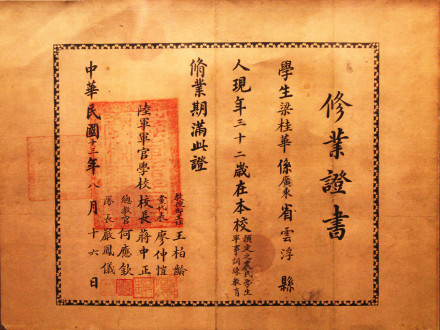 修業證書
學生梁桂華係廣東省雲浮縣
人現年三十二歲在本校
撰定之農民學生
軍事訓練教育
修業期滿此證
陸軍軍官學校
校長蔣中正
黨代表廖仲愷
教授部主任王柏齡
總教官何應欽
隊長嚴鳳儀
中華民國十三年八月十六日